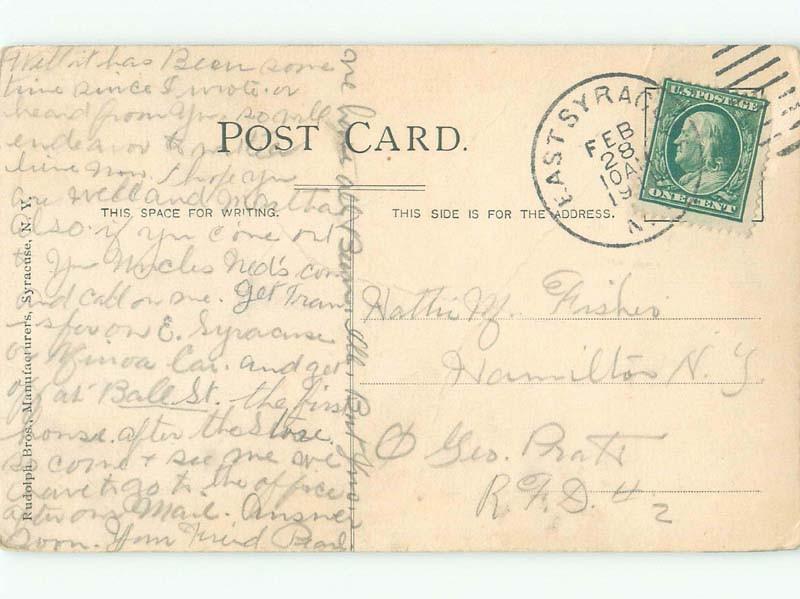 Well it has Been some
time since I wrote or
heard from you so will
endeavor to
time now. I hope you
are well and
also. if you come out
to Ned's
and call on me. Get Tran
sfer on E. Syracuse
or Minoa Car. and get
off at Ball St. the first
house after the Store
so come + see me we
have to go to the office
after our Mail. Answer
Soon. Your Friend Pearl
POST CARD.
THIS SPACE FOR WRITING.
THIS SIDE IS FOR THE ADDRESS.
Rudolph Bros., Manufacturers, Syracuse, N. Y.
EAST SYRAC
FEB
28
10 A
19
N.
U.S. POSTAGE
ONE CENT
Hattie M. Fisher
Hamilton N. Y.
Geo. Pratt
R.F.D. # 2